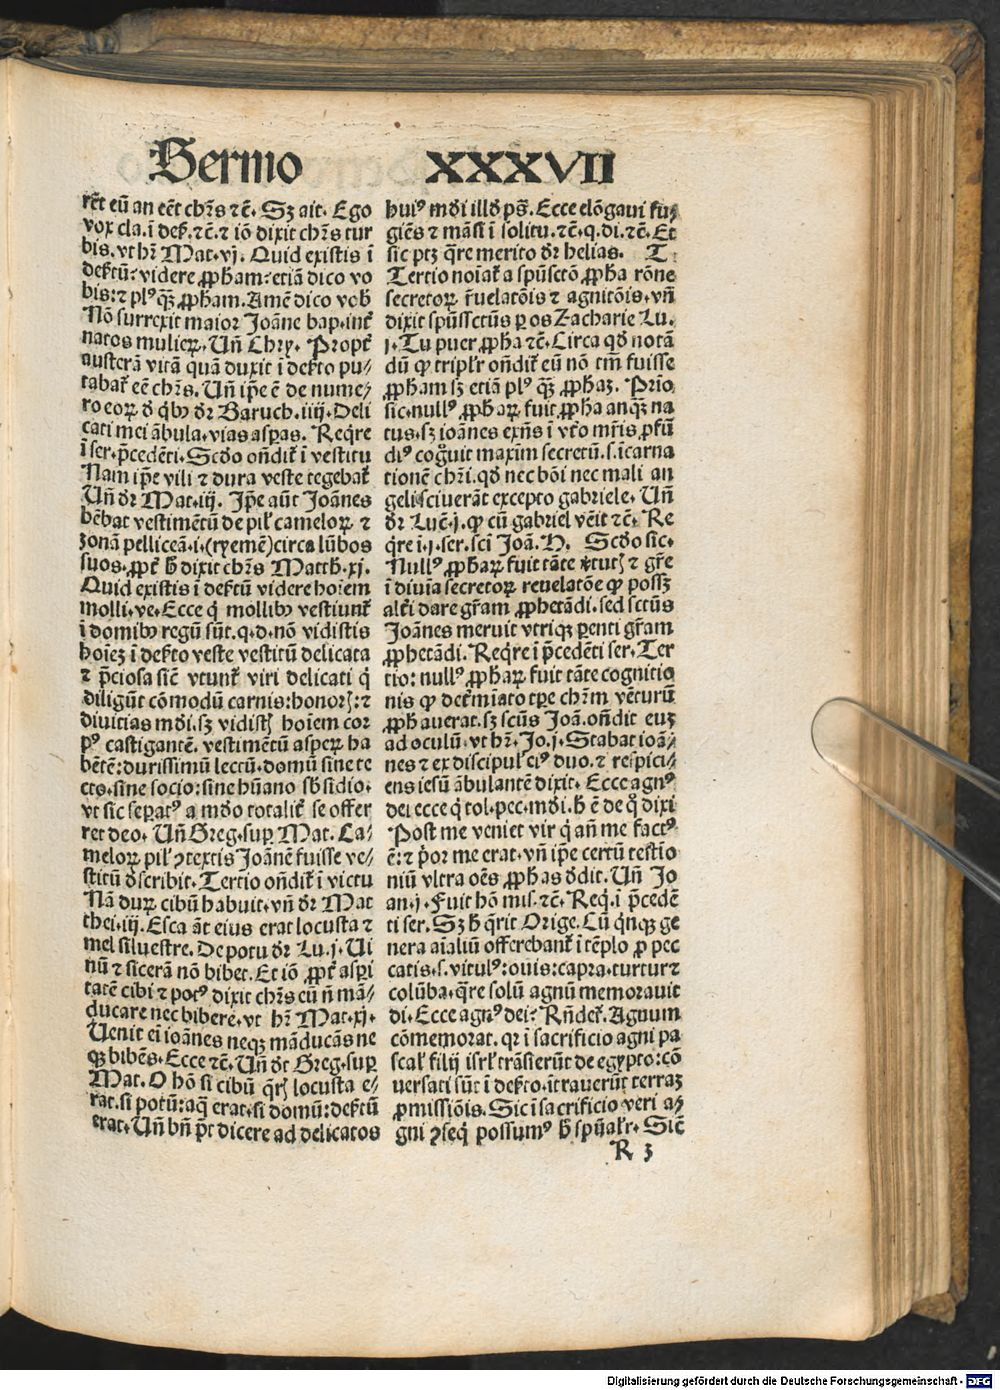 Sermo XXXVII
rēt eū an eēt chr̄s ⁊c̄. Sz ait. Ego
vox cla. ī des. ⁊c̄. ⁊ iō dixit chr̄s tur
bis. vt hr̄ Mat. vj. Quid existis ī
desertū: videre ꝓpham: etiā dico vo
bis: ⁊ plꝰ qꝫ ꝓpham. Amē dico vob̄
Nō surrexit maior Joāne bap. int̄
natos mulieꝝ. Uñ Chry. Propt̄
austerā vitā quā duxit ī defto pu⸗
tabat̄ eē chr̄s. Uñ ip̄e ē de nume⸗
ro eoꝝ d̄ qbꝰ dr̄ Baruch. iiij. Deli
cati mei ābula. vias asꝑas. Reqr̄e
ī ser. p̄cedēti. Scd̄o oñdit̄ ī vestitu
Nam ip̄e vili ⁊ dura veste tegebat̄
Uñ dr̄ Mat. iij. Jp̄e aūt Joānes
hēbat vestimētū de pil̄ cameloꝝ ⁊
zonā pelliceā. i. (ryemē) circa lūbos
suos. ꝓpt̄ h̄ dixit chr̄s Matth. xj.
Quid existis ī defktū videre hoīem
molli. ve. Ecce q̄ mollibꝰ vestiunt̄
ī domibꝰ regū sūt. q. d. nō vidistis
hoīez ī defto veste vestitū delicata
⁊ p̄ciosa sic̄ vtunt̄ viri delicati q̄
diligūt cōmodū carnis: honorꝭ: ⁊
diuitias mdi. sz vidistꝭ hoīem cor
pꝰ castigantē. vestimētū asꝑeꝝ ha
bētē: durissimū lectū. domū sine te
cto. sine socio: sine hūano sb̄sidio.
vt sic seꝑatꝰ a mdo totalit̄ se offer
ret deo. Uñ Greg. suꝑ Mat. Ca⸗
meloꝝ pil̄ ꝯtextis Joānē fuisse ve⸗
stitū d̄scribit. Tertio oñdit̄ ī victu
Nā duꝝ cibū habuit. vñ dr̄ Mat
thei. iij. Esca āt eius erat locusta ⁊
mel siluestre. De potu dr̄ Lu. j. Ui
nū ⁊ sicerā nō bibet. Et iō ꝓpt̄ asꝑi
tatē cibi ⁊ potꝰ dixit chr̄s eū ñ mā⸗
ducare nec bibere. vt hr̄ Mat. xj.
Uenit eī ioānes neqꝫ māducās ne
qꝫ bibēs. Ecce ⁊c̄. Uñ dt Greg. suꝑ
Mat. O hō si cibū qr̄ꝭ locusta e⸗
rat. si potū: aq̄ erat. si domū: defctū
erat. Uñ bñ p̄t dicere ad delicatos
huiꝰ mdi illd̄ ps̄. Ecce elōgaui fu⸗
giēs ⁊ māsi ī solitu. ⁊c̄. q. di. ⁊c̄. Et
sic ptz qr̄e merito dr̄ helias. T
Tertio noīat̄ a spūsctō ꝓpha rōne
secretoꝝ r̄uelatōis ⁊ agnitōis. vñ
dixit spūssctūs ꝑ os Zacharie Lu.
j. Tu puer ꝓpha ⁊c̄. Circa qd̄ notā
dū ꝙ tripl̄r oñdit̄ eū nō tm̄ fuisse
ꝓpham sz etiā plꝰ qꝫ ꝓphaz. Prīo
sic. nullꝰ ꝓphaꝝ fuit ꝓpha anqꝫ na
tus. sz ioānes exñs ī vt̄o mr̄is ꝓfū
diꝰ cogͦuit maxim̄ secretū. s. īcarna
tionē chr̄i. qd̄ nec bōi nec mali an
geli sciuerāt excepto gabriele. Uñ
dr̄ Luc̄. j. ꝙ cū gabriel vēit ⁊c̄. Re
qr̄e ī. j. ser. scī Joā. H. Scd̄o sic.
Nullꝰ ꝓphaꝝ fuit tāte v̄tutꝭ ⁊ gr̄e
ī diuīa secretoꝝ reuelatōe ꝙ possꝫ
alt̄i dare gr̄am ꝓphetādi. sed sctūs
Joānes meruit vtriqꝫ ꝑenti gr̄am
ꝓphetādi. Reqr̄e ī p̄cedēti ser. Ter
tio: nullꝰ ꝓphaꝝ fuit tāte cognitio
nis ꝙ det̄mīato tꝑe chr̄m vēturū
ꝓphauerat. sz scūs Joā. oñdit euꝫ
ad oculū. vt hr̄. Jo. j. Stabat ioā⸗
nes ⁊ ex discipul̄ eiꝰ duo. ⁊ respici⸗
ens iesū ābulantē dixit. Ecce agnꝰ
dei ecce q̄ tol. pec. mdi. h̄ ē de qͦ dixi
Post me veniet vir q̄ añ me factꝰ
ē: ⁊ p̄or me erat. vñ ip̄e certū testīo
niū vltra oēs ꝓphas d̄dit. Uñ Jo
an. j. Fuit hō mis. ⁊c̄. Req̄. ī p̄cedē
ti ser. Sz h̄ qr̄it Orige. Cū qn̄qꝫ ge
nera aīaliū offerebant̄ ī tēplo ꝓ pec
catis. s. vitulꝰ: ouis: capra. turtur ⁊
colūba. qr̄e solū agnū memorauit
di. Ecce agnꝰ dei? Rn̄det̄. Agnum
cōmemorat. qr ī sacrificio agni pa
scal̄ filij isrl̄ trāsierūt de egypto: cō
uersati sūt ī defto. ītrauerūt terraꝫ
ꝓmissiōis. Sic ī sacrificio veri a⸗
gni ꝯseq̄ possumꝰ h̄ spūal̄r. Sic̄
R 3
Digitalisierung gefördert durch die Deutsche Forschungsgemeinschaft - DFG